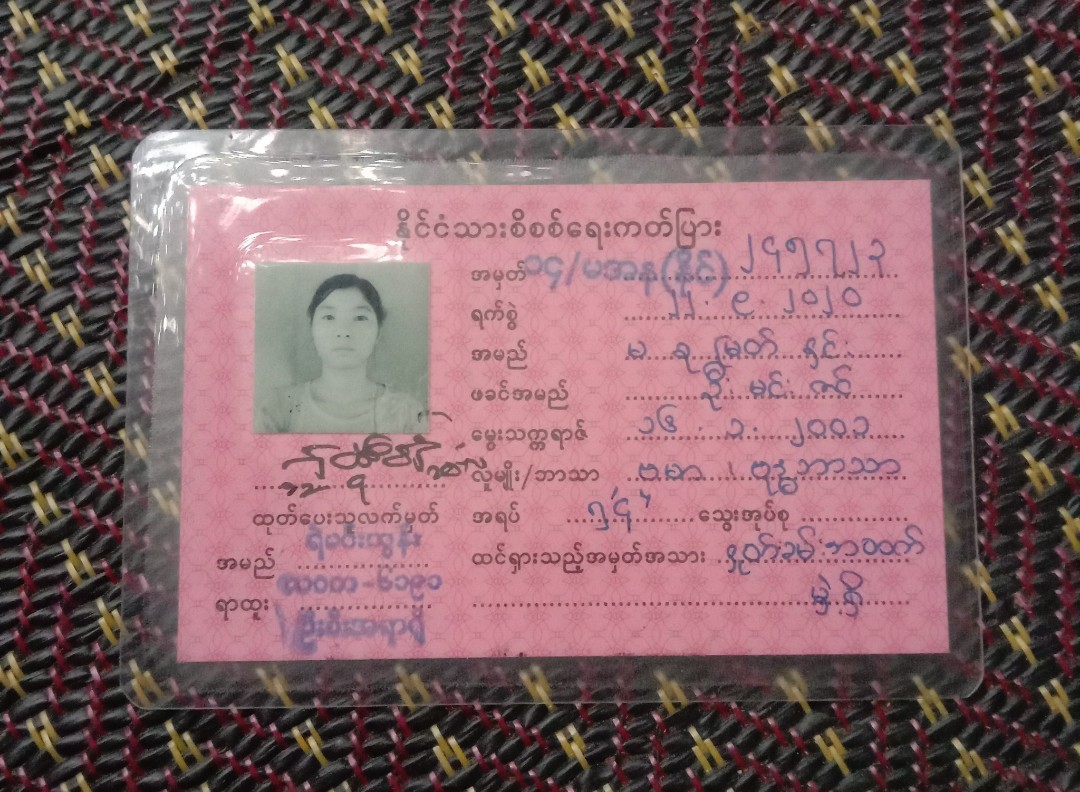 နိုင်ငံသားစိစစ်ရေးကတ်ပြား
အမှတ် ၁၄/မအန(နိုင်) ၂၄၅၇၂၃
ရက်စွဲ ၂၂.၉.၂၀၂၀
အမည် မ ခု မြတ် နှင်း
ဖခင်အမည် ဦး မင်း ဇင်
မွေးသက္ကရာဇ် ၁၆.၁.၂၀၀၁
လူမျိုး/ဘာသာ ဗမာ ၊ ဗုဒ္ဓဘာသာ
အရပ် ၅'၄" သွေးအုပ်စု
ထင်ရှားသည့်အမှတ်အသား နှုတ်ခမ်းဘယဘက်
မှဲ့ရှိ
ထုတ်ပေးသူလက်မှတ်
အမည် ရဲမင်းထွန်း
ရာထူး လဝတ-၆၁၉၁
ဦးစီးအရာရှိ